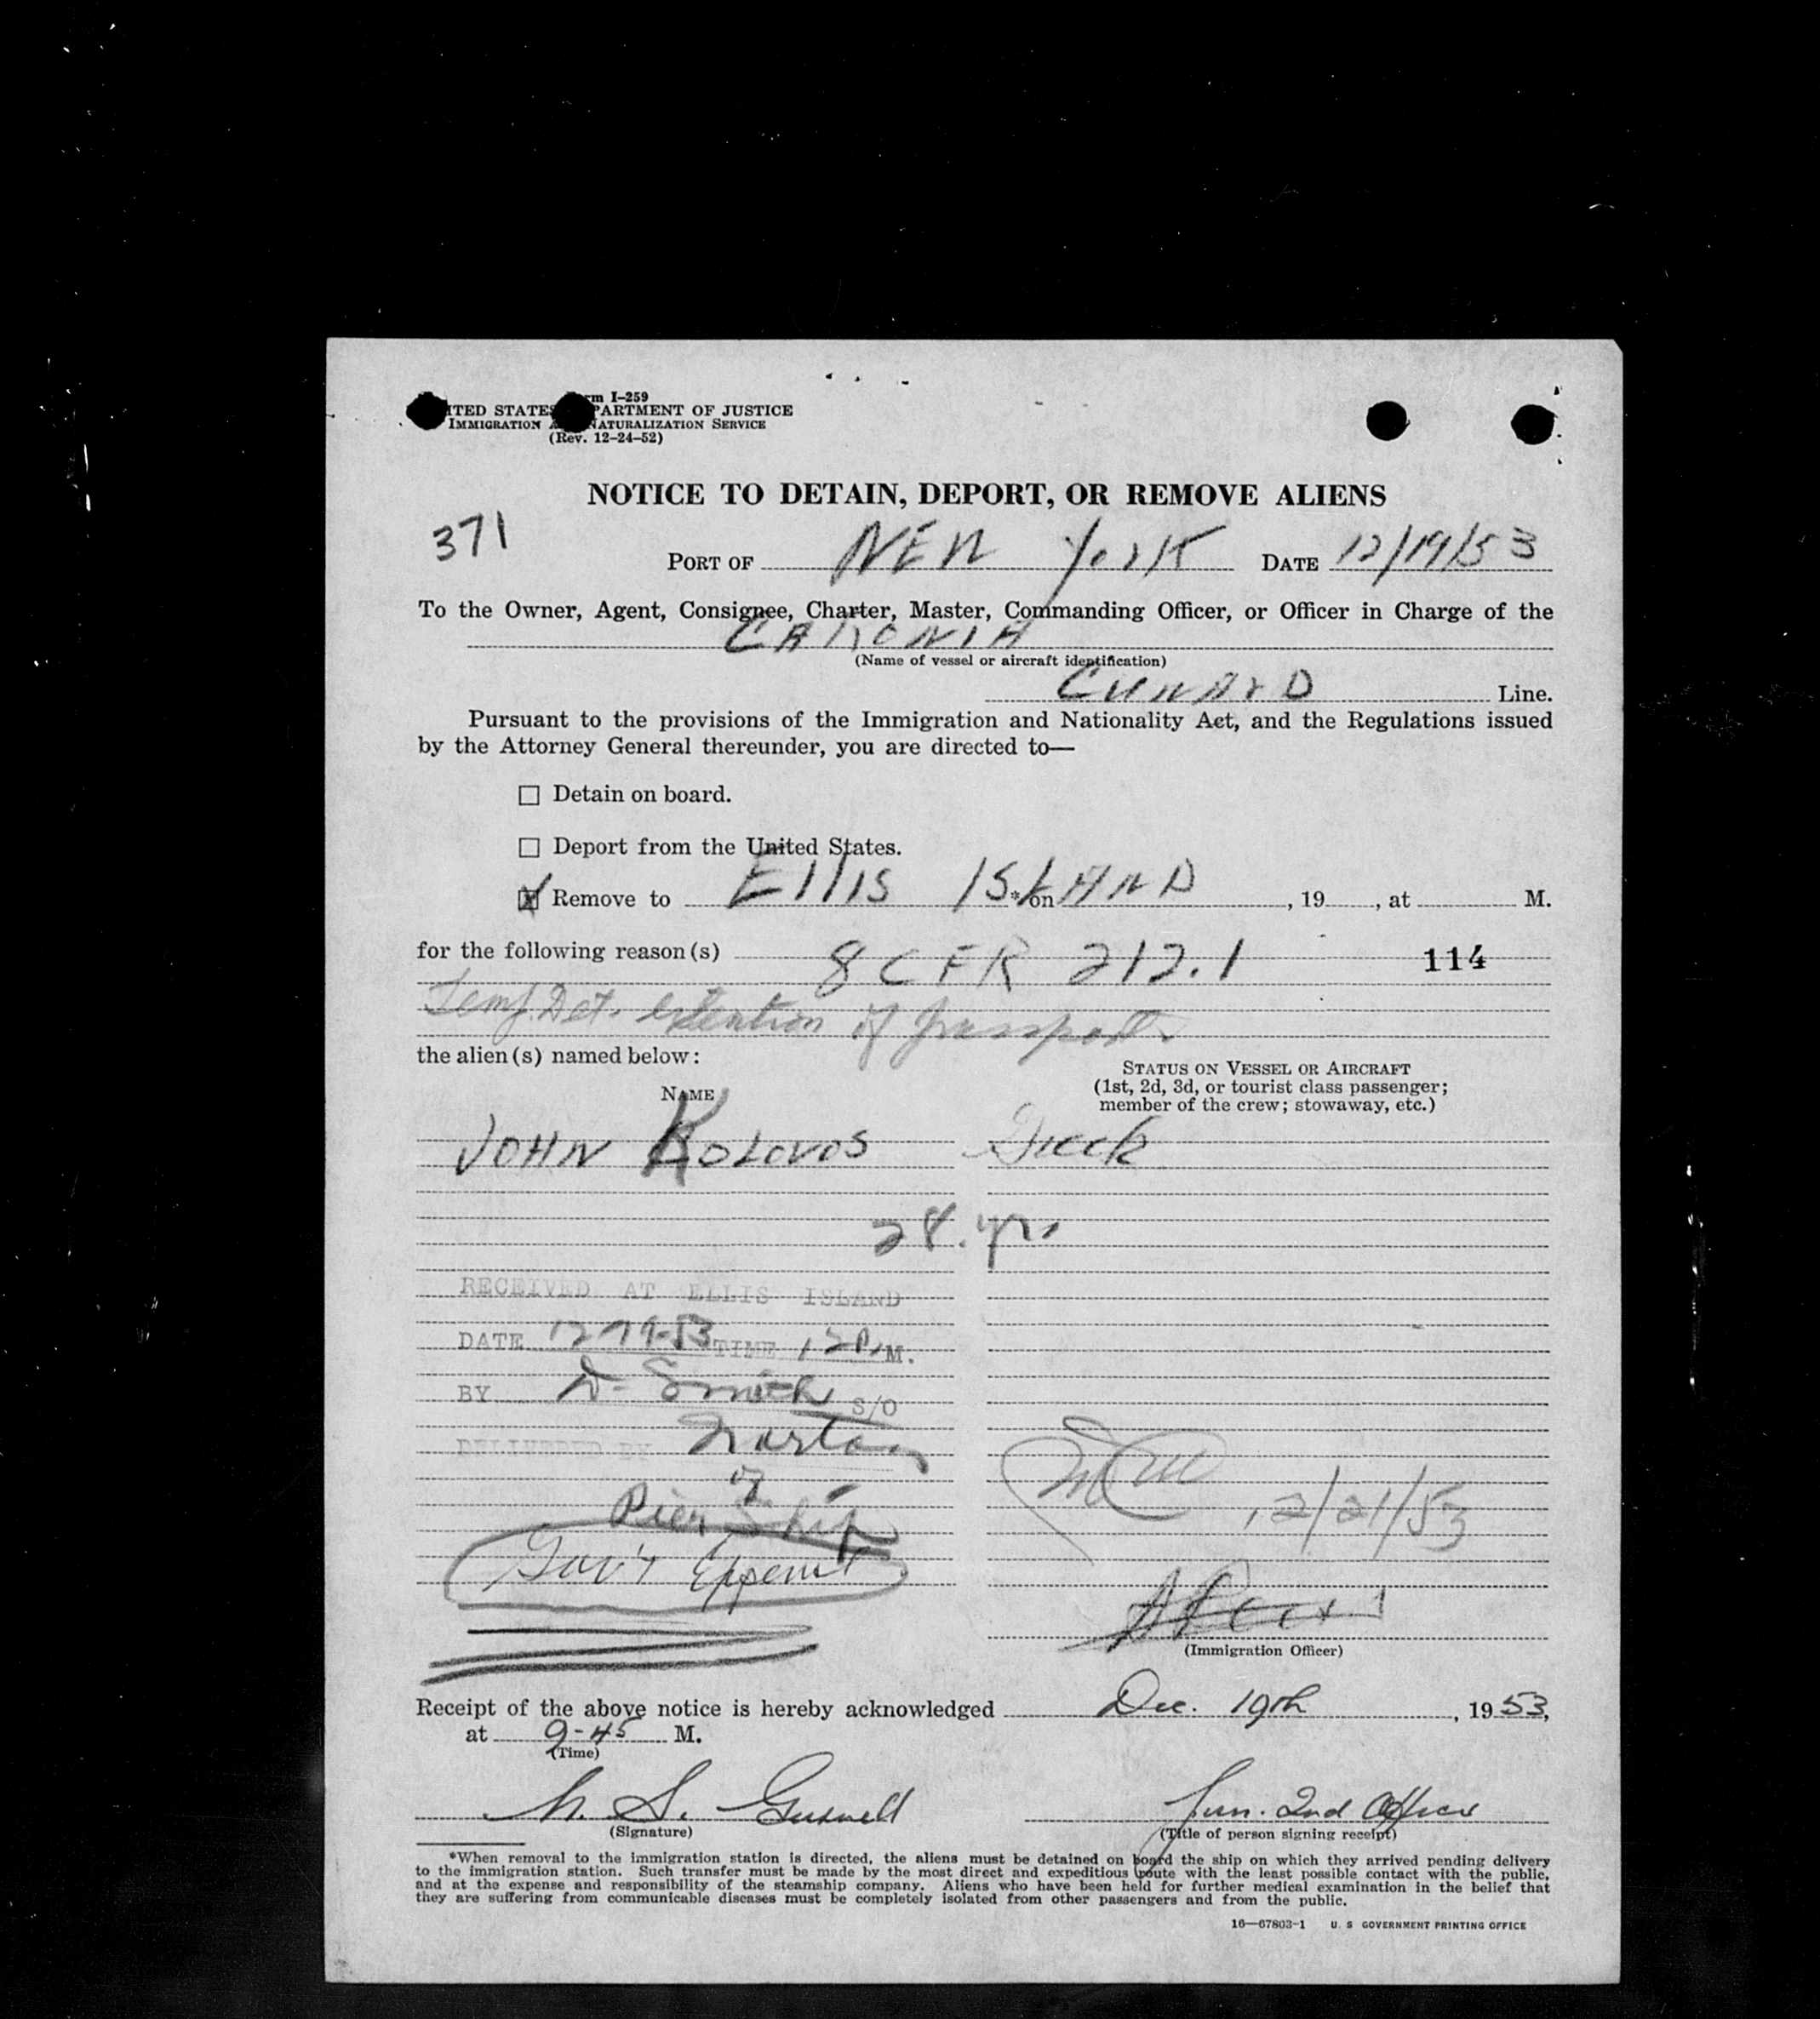 Form I-259
UNITED STATES DEPARTMENT OF JUSTICE
IMMIGRATION AND NATURALIZATION SERVICE
(Rev. 12-24-52)
NOTICE TO DETAIN, DEPORT, OR REMOVE ALIENS
371
PORT OF NEW YORK DATE 12/19/53
To the Owner, Agent, Consignee, Charter, Master, Commanding Officer, or Officer in Charge of the
CARONIA
(Name of vessel or aircraft identification)
CUNARD Line.
Pursuant to the provisions of the Immigration and Nationality Act, and the Regulations issued
by the Attorney General thereunder, you are directed to—
☐ Detain on board.
☐ Deport from the United States.
☒ Remove to Ellis ISLAND * on , 19 , at M.
for the following reason(s) 8 CFR 212.1 114
Temp. Det. extention of passport.
the alien(s) named below:
NAME
STATUS ON VESSEL OR AIRCRAFT
(1st, 2d, 3d, or tourist class passenger;
member of the crew; stowaway, etc.)
JOHN KOLOVOS Greek
28. yrs
RECEIVED AT ELLIS ISLAND
DATE 12-19-53 TIME 120 P.M.
BY D. Smith S/O
DELIVERED BY Norton
of
Pier Ship
12/21/53
Gov't Expense
(Immigration Officer)
Receipt of the above notice is hereby acknowledged Dec. 19th, 1953,
at 9-45 M.
(Time)
Jun. 2nd Officer
(Signature) (Title of person signing receipt)
*When removal to the immigration station is directed, the aliens must be detained on board the ship on which they arrived pending delivery
to the immigration station. Such transfer must be made by the most direct and expeditious route with the least possible contact with the public,
and at the expense and responsibility of the steamship company. Aliens who have been held for further medical examination in the belief that
they are suffering from communicable diseases must be completely isolated from other passengers and from the public.
16—67803-1 U. S GOVERNMENT PRINTING OFFICE